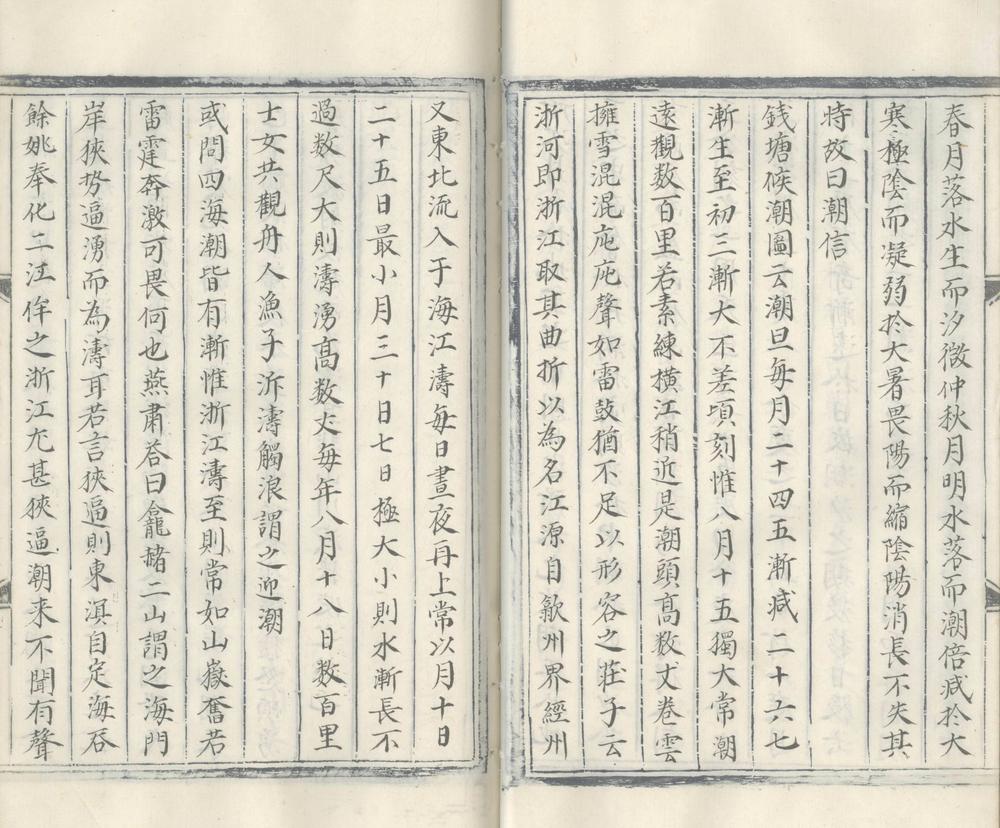 春月落水生而汐微仲秋月明水落而潮倍减於大
寒極陰而凝弱於大暑畏陽而縮陰陽消長不失其
時故曰潮信
錢塘候潮圖云潮旦每月二十四五漸减二十六七
漸生至初三漸大不差頃刻惟八月十五獨大常潮
遠觀数百里若素練橫江稍近是潮頭髙数丈卷雲
擁雪混混庉庉聲如雷鼓猶不足以形容之莊子云
浙河即浙江取其曲折以為名江源自歙州界經州
又東北流入于海江濤每日晝夜再上常以月十日
二十五日最小月三十日七日極大小則水漸長不
過数尺大則濤湧髙数丈每年八月十八日数百里
士女共觀舟人漁子泝濤觸浪謂之迎潮
或問四海潮皆有漸惟浙江濤至則常如山嶽奮若
雷霆奔激可畏何也燕肅荅曰龕赭二山謂之海門
岸狹势逼湧而為濤耳若言狹逼則東溟自定海吞
餘姚奉化二江侔之浙江尤甚狹逼潮来不聞有聲